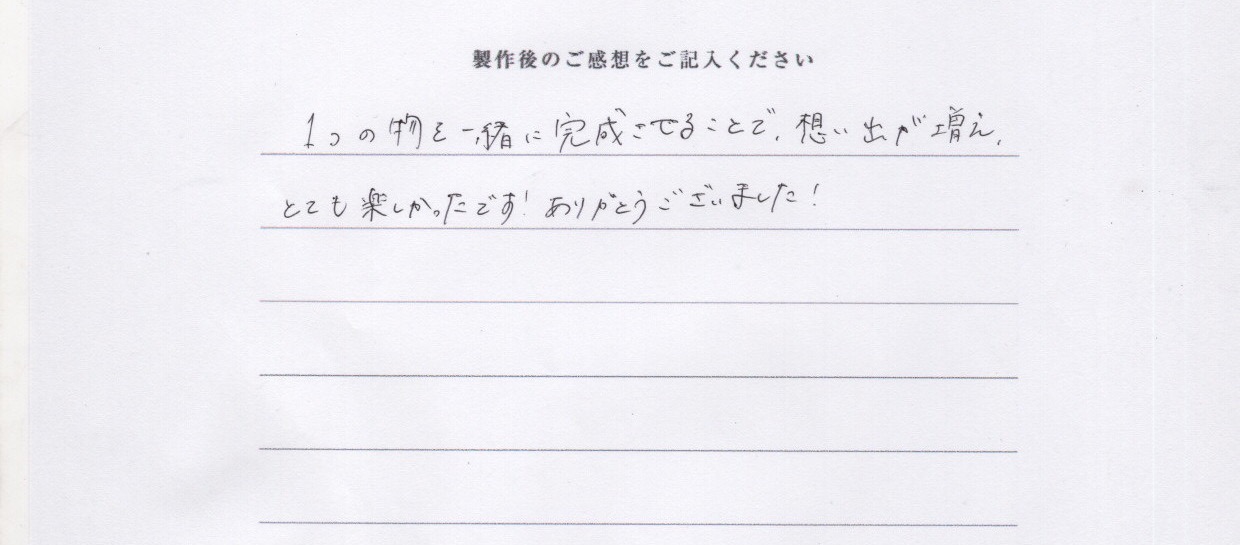 製作後のご感想をご記入ください
1つの物を一緒に完成させることで、想い出が増え、
とても楽しかったです!ありがとうございました!